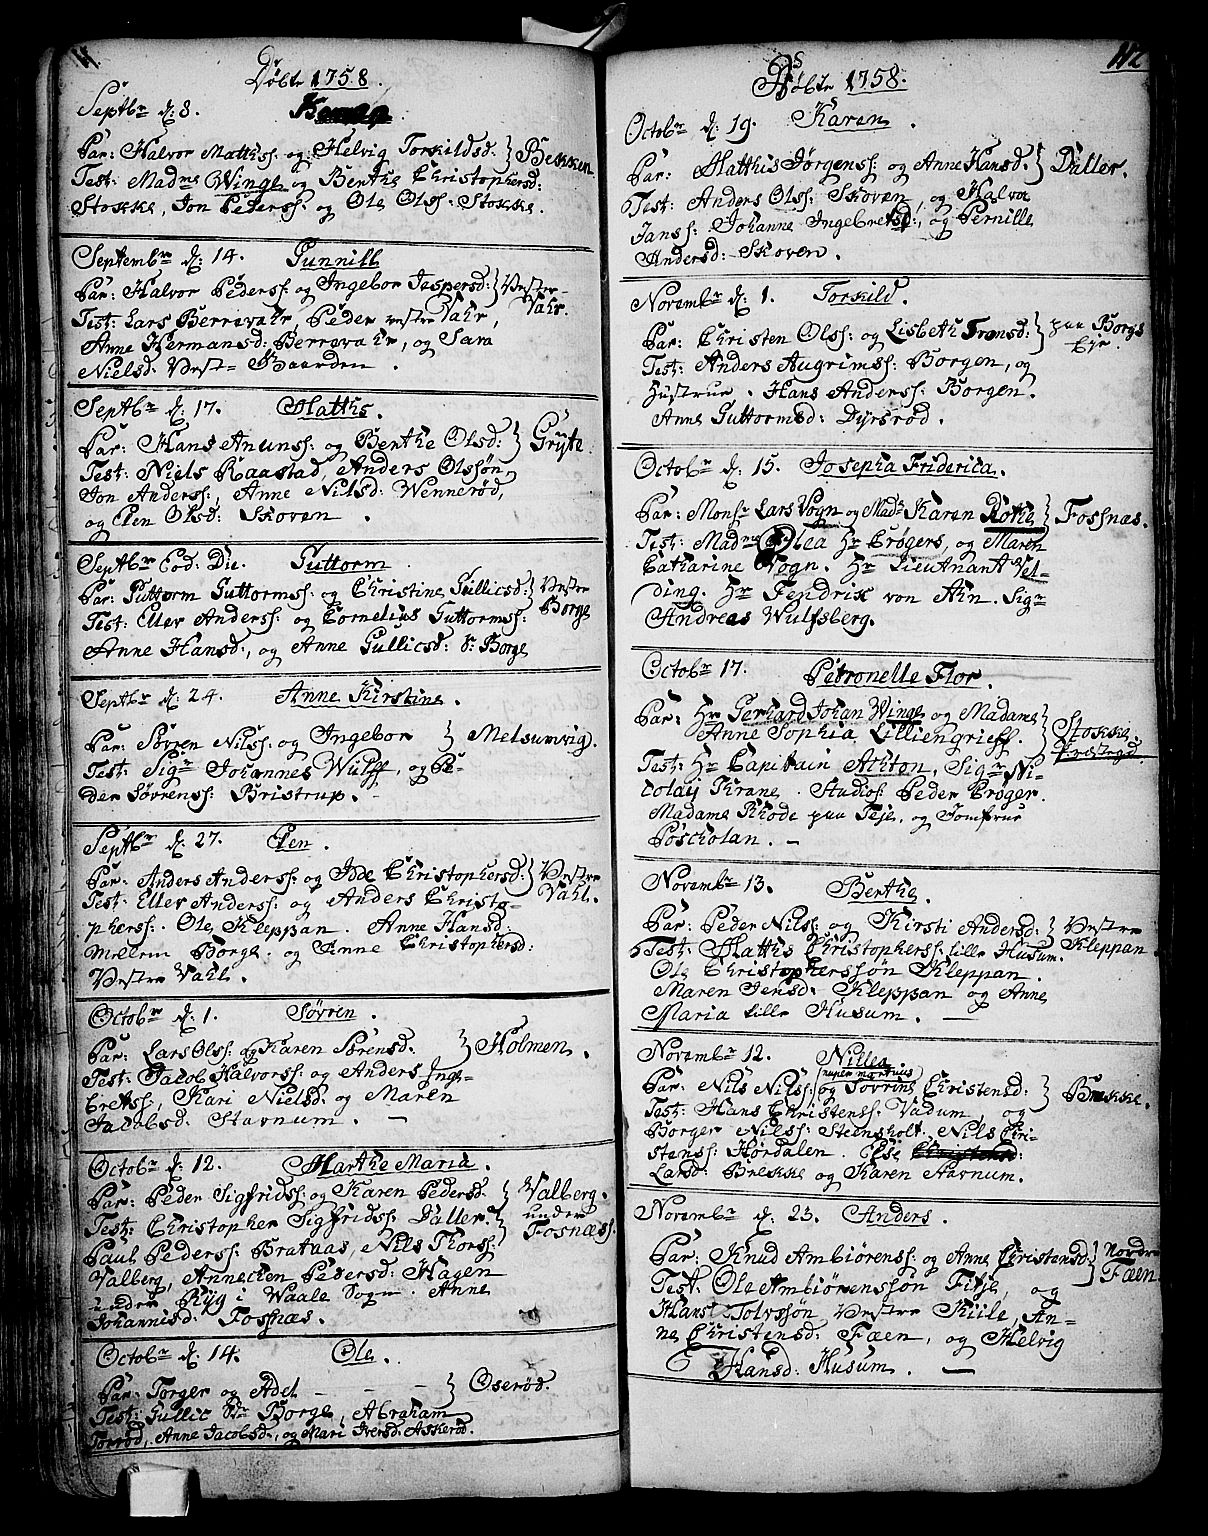 Döbte 1758.
Septbr d: 8.
Par: Halvor Matthss: og Helvig Torkildsd: } Bekken
Test: Madme Winge og Berthe Christophersd:
Stokke, Jon Pederss: og Ole Olss: Stokke.
Septembr d: 14. Gunnill
Par: Halvor Pederss: og Ingebor Jespersd: } Vestre-
Test: Lars Berrevahr, Peder vestre Vahr, Vahr.
Anne Hermansd: Berrevahr, og Sara
Nielsd: Vest- Gaarden.
Septbr d: 17. Matths.
Par: Hans Anunss: og Berthe Olsd: } Gryte.
Test: Niels Raastad, Anders Olssön,
Jon Anderss:, Anne Nilsd: Wennerød,
og Elen Olsd: Skoven.
Septbr Eod: Die. Guttorm
Par: Guttorm Guttormss: og Christine Gullicsd: } Vestre
Test: Ellev Anderss: og Cornelius Guttormss: Borge
Anne Hansd:, og Anne Gullicsd: Sr Borge
Septbr d: 24. Anne Kirstine.
Par: Sövren Nilss: og Ingebor } Melsumvig.
Test: Sigr Johannes Wulff, og Pe-
der Sövrenss: Bristrup.
Septbr d: 27. Elen.
Par: Anders Anderss: og Idde Christophersd: } Vestre
Test: Ellev Anderss: og Anders Christo- Vahl.
pherss: Ole Kleppan. Anne Hansd:
mellem Borge. og Anne Christophersd:
Vestre Vahl.
Octobr d: 1. Sövren.
Par: Lars Olss: og Karen Sörensd: } Holmen.
Test: Jacob Halvorss: og Anders Inge-
bretss:, Kari Nielsd: og Maren
Jacobsd: Stavnum. —
Octobr d: 12. Marthe Maria.
Par: Peder Sigfridss: og Karen Pedersd: } Valberg.
Test: Christopher Sigfridss: Daller. under
Paul Pederss: Brataas, Nils Thorss: Fossnæs.
Valberg, Annechen Pedersd: Hagen
under Ryg i Waale Sogn. Anne
Johannisd: Fossnæs.
Octobr d: 14. Ole.
Par: Torger og Adel - - - } Oserød.
Test: Gullic Sdr Borge, Abraham
Torrød, Anne Jacobsd:, og Mari Iversd: Askerød.
112
Döbte 1758.
Octobr d: 19. Karen.
Par: Matthis Jörgenss: og Anne Hansd: } Daller.
Test: Anders Olss: Skoven, og Halvor
Janss: Johanne Ingebretsd:, og Pernille
Andersd: Skoven.
Novembr d: 1. Torkild.
Par: Christen Olss: og Lisbeth Tronsd: } paa Borge
Test: Anders Augrimss: Borgen, og Eje.
Hustrue. Hans Anderss: Borgen.
Anne Guttormsd: Dyrsrød.
Octobr d: 15. Josepha Friderica.
Par: Monsr Lars Vogn og Madm Karen Rothe } Fossnæs.
Test: Madme Olea Hr Crögers, og Maren
Catharine Vogn. Hr Lieutnant Vel-
ding. Hr Fendrix von Ahn. Sigr
Andreas Wulfsberg.
Octobr 17. Petronelle Flor.
Par: Hr Gerhard Johan Winge og Madame } Stokke
Anne Sophia Lilliengrieff. Præstegd.
Test: Hr Capitain Achton, Sigr Ni-
colay Krane. Studios: Peder Cröger.
Madame Rhode paa Teje, og Jomfrue
Poscholan. —
Novembr 13. Berthe.
Par: Peder Nilss: og Kirsti Andersd: } Vestre
Test: Matths Christopherss: lille Husum. Kleppan
Ole Christopherssön Kleppan.
Maren Jensd: Kleppan og Anne
Maria lille Husum. —
Novembr 12. Nille
(nuper mortuus)
Par: Nils Nilss: og Sövrine Christensd: } Brekke.
Test: Hans Christenss: Vadum, og
Borger Nilss: Steensholt. Nils Chri-
stenss: Hørdalen. Else Christensd:
Larsd: Brekke og Karen Aarnum.
Novembr d. 23. Anders.
Par: Knud Ambiörenss: og Anne Christensd: } Nordre
Test: Ole Ambiörenssön Fitje, og Fæen
Hans Tolvssön Vestre Kiile, An-
ne Christensd: Fæen, og Helvig
Hansd: Husum. —